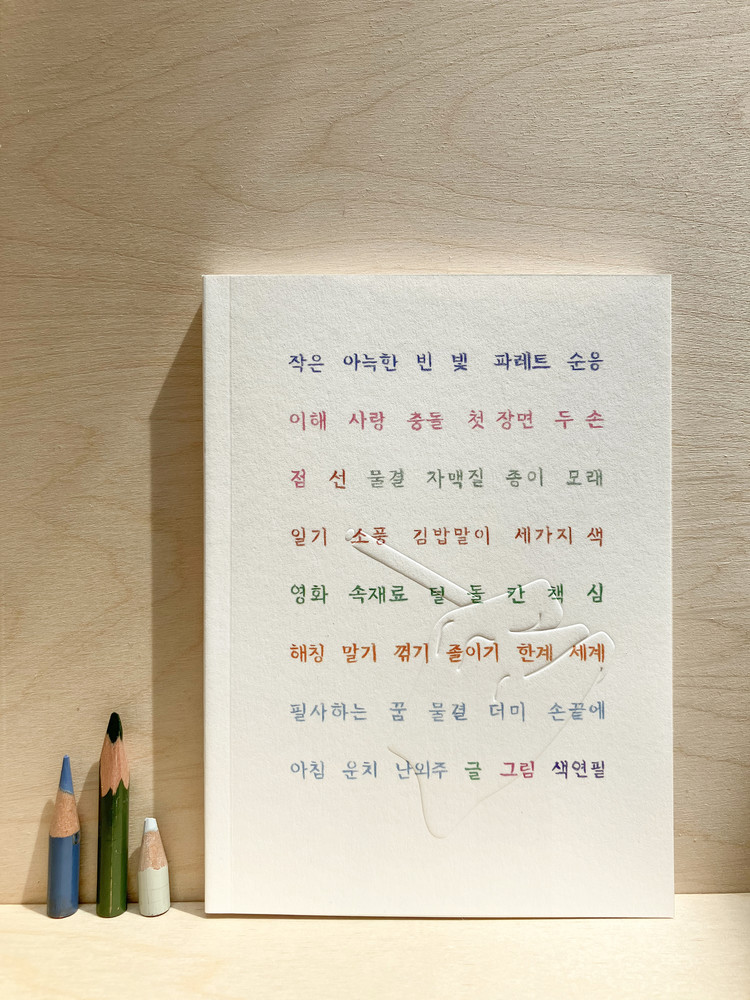 작은 아늑한 빈 빛 파레트 순응
이해 사랑 충돌 첫 장면 두 손
점 선 물결 자맥질 종이 모래
일기 소풍 김밥말이 세가지 색
영화 속재료 털 돌 칸 책 심
해칭 말기 꺾기 졸이기 한계 세계
필사하는 꿈 물결 더미 손끝에
아침 운치 난외주 글 그림 색연필